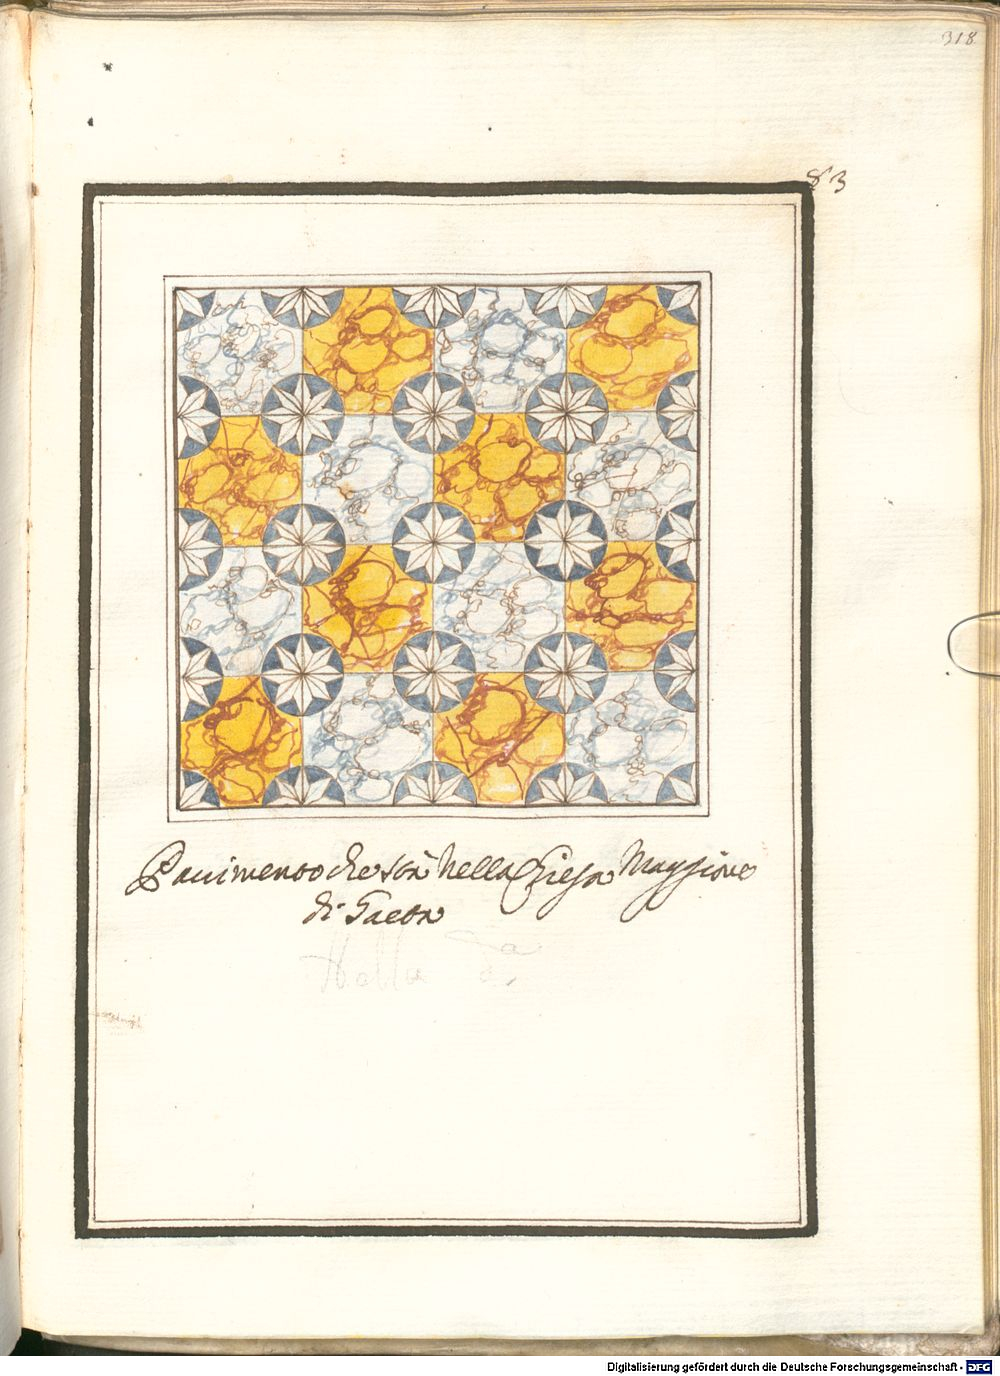 318
83
Pauimento che stà nella Chiesa Maggiore
di Gaeta
Digitalisierung gefördert durch die Deutsche Forschungsgemeinschaft - DFG